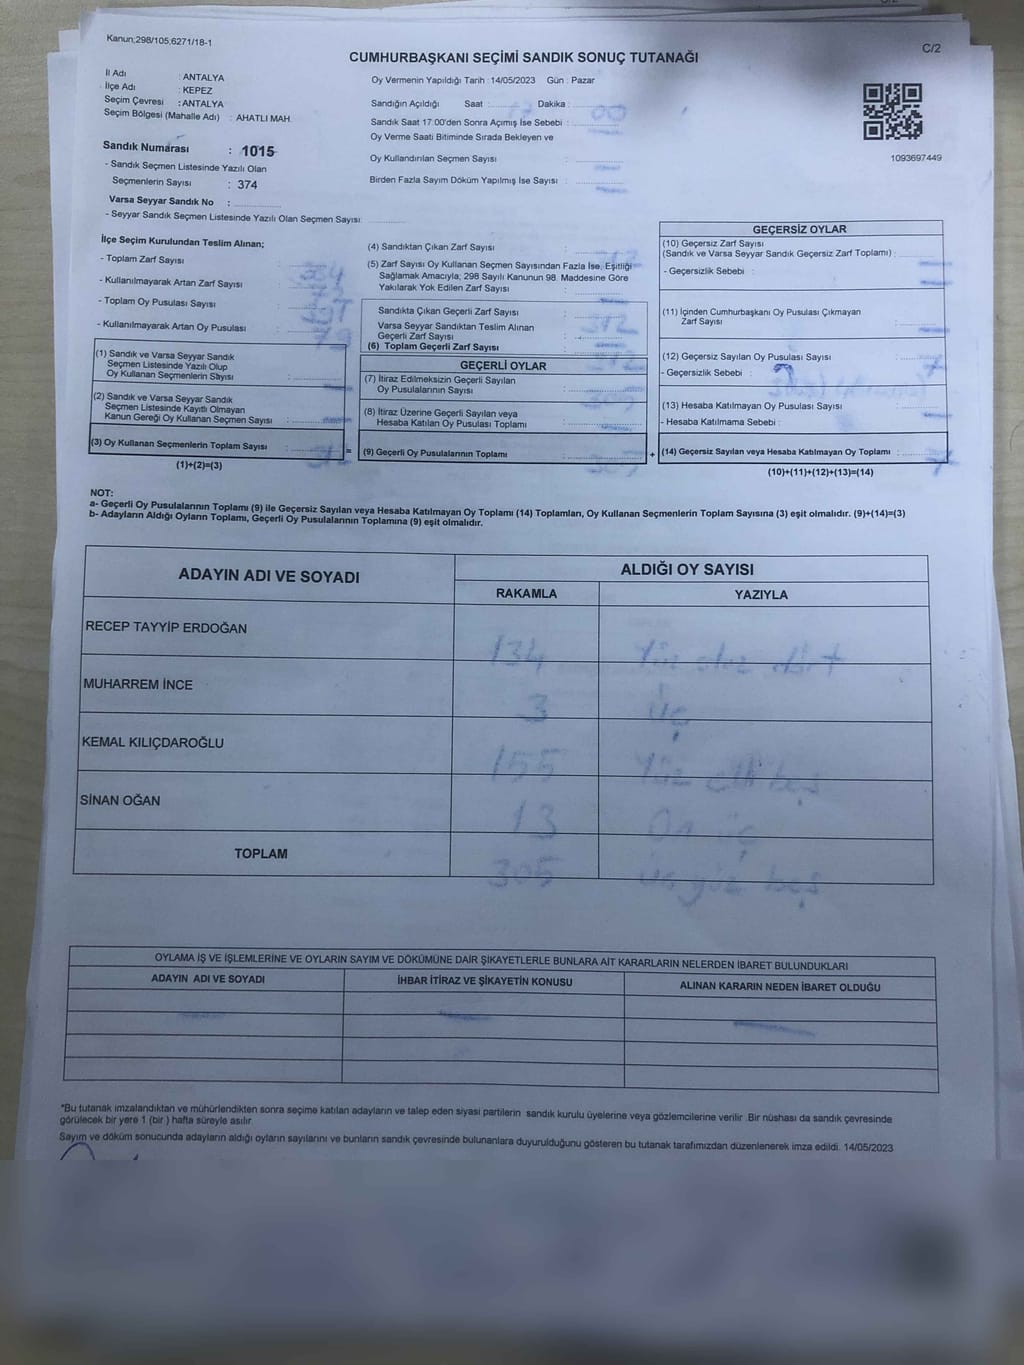 Kanun;298/105,6271/18-1
C/2
CUMHURBAŞKANI SEÇİMİ SANDIK SONUÇ TUTANAĞI
İl Adı : ANTALYA
İlçe Adı : KEPEZ
Seçim Çevresi : ANTALYA
Seçim Bölgesi (Mahalle Adı) : AHATLI MAH.
Oy Vermenin Yapıldığı Tarih : 14/05/2023 Gün : Pazar
Sandığın Açıldığı Saat : 17 Dakika : 00
Sandık Saat 17:00'den Sonra Açımış İse Sebebi :
Oy Verme Saati Bitiminde Sırada Bekleyen ve
Oy Kullandırılan Seçmen Sayısı :
Birden Fazla Sayım Döküm Yapılmış İse Sayısı :
1093697449
Sandık Numarası : 1015
- Sandık Seçmen Listesinde Yazılı Olan
Seçmenlerin Sayısı : 374
Varsa Seyyar Sandık No :
- Seyyar Sandık Seçmen Listesinde Yazılı Olan Seçmen Sayısı:
İlçe Seçim Kurulundan Teslim Alınan;
- Toplam Zarf Sayısı :
- Kullanılmayarak Artan Zarf Sayısı :
- Toplam Oy Pusulası Sayısı :
- Kullanılmayarak Artan Oy Pusulası : 79
(1) Sandık ve Varsa Seyyar Sandık
Seçmen Listesinde Yazılı Olup
Oy Kullanan Seçmenlerin Sayısı :
(2) Sandık ve Varsa Seyyar Sandık
Seçmen Listesinde Kayıtlı Olmayan
Kanun Gereği Oy Kullanan Seçmen Sayısı :
(3) Oy Kullanan Seçmenlerin Toplam Sayısı : 312 =
(1)+(2)=(3)
(4) Sandıktan Çıkan Zarf Sayısı : 312
(5) Zarf Sayısı Oy Kullanan Seçmen Sayısından Fazla İse, Eşitliği
Sağlamak Amacıyla; 298 Sayılı Kanunun 98. Maddesine Göre
Yakılarak Yok Edilen Zarf Sayısı :
Sandıkta Çıkan Geçerli Zarf Sayısı : 312
Varsa Seyyar Sandıktan Teslim Alınan
Geçerli Zarf Sayısı :
(6) Toplam Geçerli Zarf Sayısı : 312
GEÇERLİ OYLAR
(7) İtiraz Edilmeksizin Geçerli Sayılan
Oy Pusulalarının Sayısı : 305
(8) İtiraz Üzerine Geçerli Sayılan veya
Hesaba Katılan Oy Pusulası Toplamı :
(9) Geçerli Oy Pusulalarının Toplamı : 305 +
GEÇERSİZ OYLAR
(10) Geçersiz Zarf Sayısı
(Sandık ve Varsa Seyyar Sandık Geçersiz Zarf Toplamı) :
- Geçersizlik Sebebi :
(11) İçinden Cumhurbaşkanı Oy Pusulası Çıkmayan
Zarf Sayısı :
(12) Geçersiz Sayılan Oy Pusulası Sayısı : 7
- Geçersizlik Sebebi :
(13) Hesaba Katılmayan Oy Pusulası Sayısı :
- Hesaba Katılmama Sebebi :
(14) Geçersiz Sayılan veya Hesaba Katılmayan Oy Toplamı : 7
(10)+(11)+(12)+(13)=(14)
NOT:
a- Geçerli Oy Pusulalarının Toplamı (9) ile Geçersiz Sayılan veya Hesaba Katılmayan Oy Toplamı (14) Toplamları, Oy Kullanan Seçmenlerin Toplam Sayısına (3) eşit olmalıdır. (9)+(14)=(3)
b- Adayların Aldığı Oyların Toplamı, Geçerli Oy Pusulalarının Toplamına (9) eşit olmalıdır.
ADAYIN ADI VE SOYADI ALDIĞI OY SAYISI
RAKAMLA YAZIYLA
RECEP TAYYİP ERDOĞAN 134 Yüz otuz dört
MUHARREM İNCE 3 üç
KEMAL KILIÇDAROĞLU 155 Yüz elli beş
SİNAN OĞAN 13 On üç
TOPLAM 305 üç yüz beş
OYLAMA İŞ VE İŞLEMLERİNE VE OYLARIN SAYIM VE DÖKÜMÜNE DAİR ŞİKAYETLERLE BUNLARA AİT KARARLARIN NELERDEN İBARET BULUNDUKLARI
ADAYIN ADI VE SOYADI İHBAR İTİRAZ VE ŞİKAYETİN KONUSU ALINAN KARARIN NEDEN İBARET OLDUĞU
*Bu tutanak imzalandıktan ve mühürlendikten sonra seçime katılan adayların ve talep eden siyasi partilerin sandık kurulu üyelerine veya gözlemcilerine verilir. Bir nüshası da sandık çevresinde
görülecek bir yere 1 (bir ) hafta süreyle asılır.
Sayım ve döküm sonucunda adayların aldığı oyların sayılarını ve bunların sandık çevresinde bulunanlara duyurulduğunu gösteren bu tutanak tarafımızdan düzenlenerek imza edildi. 14/05/2023